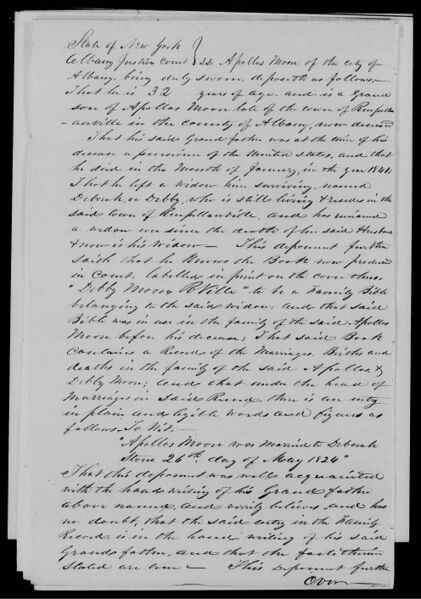 State of New York
Albany Justice Court } ss Apollos Moon of the city of
Albany being duly sworn, deposeth as follows,
That he is 32 years of age and is a Grand
son of Apollos Moon late of the town of Renssellaer
-ville in the County of Albany, now deceased
That his said Grand father was at the time of his
decease a pensioner of the United States, and that
he died in the Month of January, in the year
That he left a widow him surviving, named
Deborah, or Debby, who is still living & resides in the
said town of Rensellaerville, and has remained
a widow ever since the death of her said Husband
& now is his Widow — This deponent further
saith that he knows the Book now produced
in Court, labelled in print on the cover thus,
"Debby Moon R. Ville" to be a Family Bible
belonging to the said widow and that said
Bible was in use in the family of the said Apollos
Moon before his decease; That said Book
contains a Record of the Marriages, Births and
deaths in the family of the said Apollos, &
Debby Moon; and that under the head of
Marriages in said Record, there is an entry
in plain and legible words and figures as
follows To Wit,
"Apollos Moon was married to Deborah
Stone 26th day of May 1824"
That this deponent was well acquainted
with the hand writing of his Grand father
above named, and verily believes and has
no doubt, that the said entry in the Family
Record is in the hand writing of his said
Grandfather, and that the facts therein
stated are true — This deponent further
Over